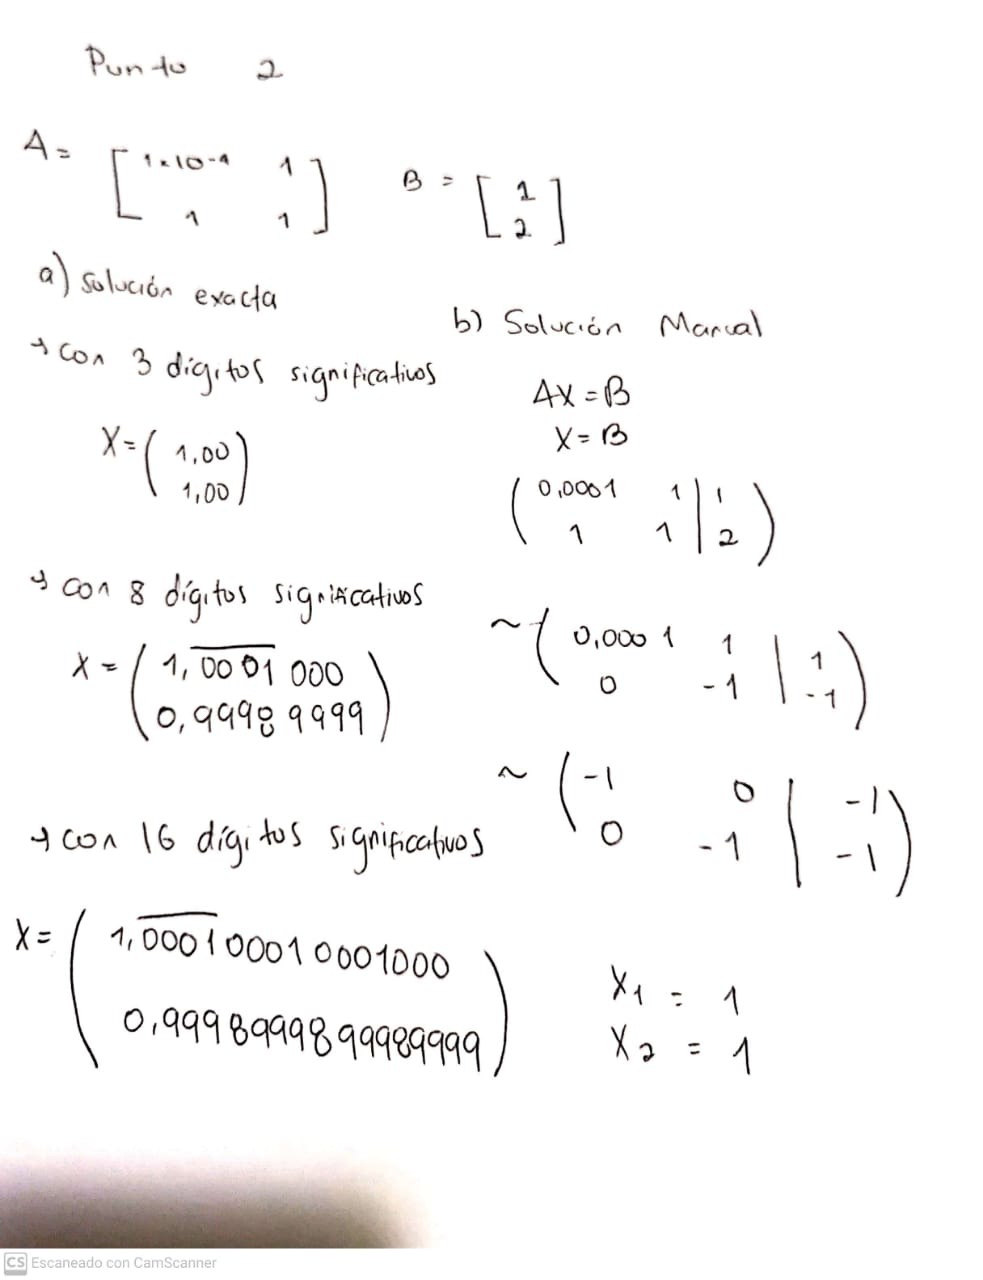 Punto 2
A = [ 1x10-4 1
1 1 ]
B = [ 1
2 ]
a) Solución exacta
→ Con 3 dígitos significativos
X = ( 1,00
1,00 )
→ con 8 dígitos significativos
X = ( 1,0001000
0,99989999 )
→ con 16 dígitos significativos
X = ( 1,000100010001000
0,9998999899989999 )
b) Solución Manual
AX = B
X = B
( 0,0001 1 | 1
1 1 | 2 )
~ ( 0,0001 1 | 1
0 -1 | -1 )
~ ( -1 0 | -1
0 -1 | -1 )
X1 = 1
X2 = 1
CS Escaneado con CamScanner